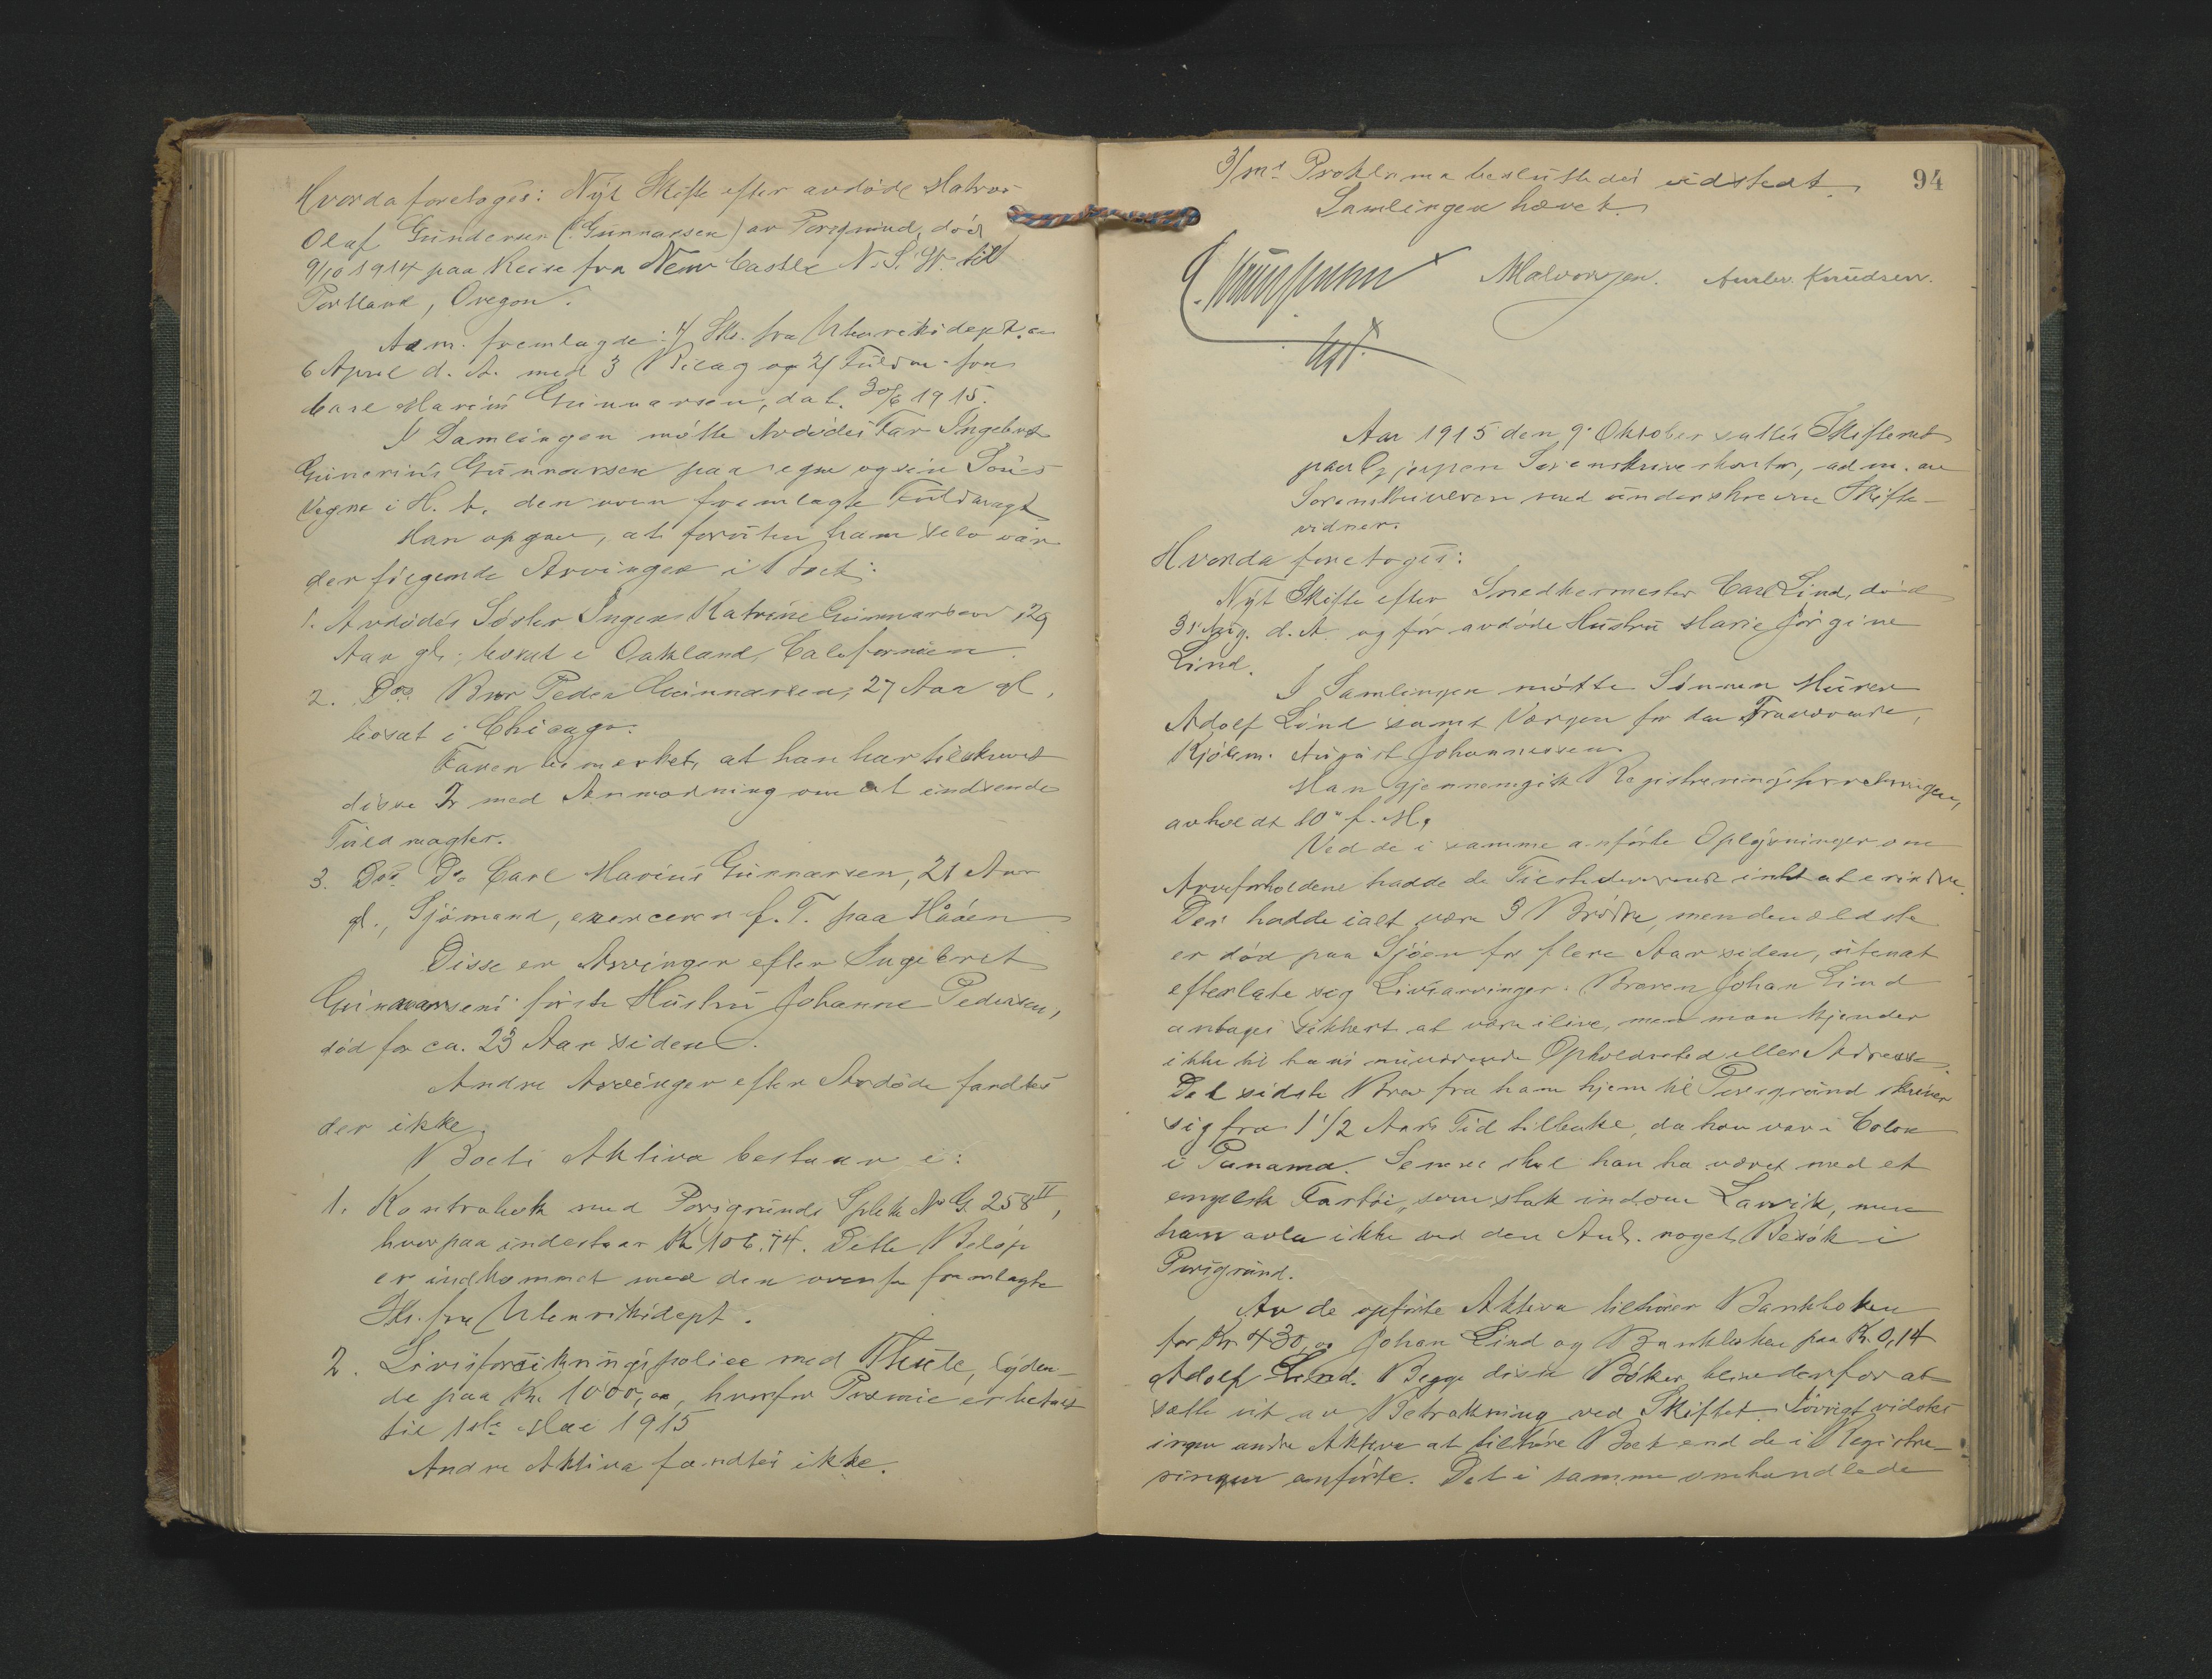 Hvorda foretoges: Nyt Skifte efter avdöde Matros
Olaf Gundersen (: Gunnarsen) av Porsgrund, död
9/10 1914 paa Reise fra New Castle N. S. W. til
Portland, Oregon.
Adm. fremlagde: 1/ Skr. fra Utenriksdept. av
6 April d. A. med 3 Bilag og 2/ Fuldm. fra
Carl Marius Gunnarsen, dat. 30/6 1915.
I Samlingen mötte Avdödes Far Ingebret
Gunerius Gunnarsen paa egne og sin Söns
Vegne i H. t. den oven fremlagte Fuldmagt
Han opgav, at foruten ham selv var
der fölgende Arvinger i Boet:
1. Avdödes Söster Katrine Gunnarsen, 29
Aar gl., bosat i Oakland, Californien.
2. Dos. Bror Peder Gunnarsen, 27 Aar gl.,
bosat i Chicago.
Faren bemerket, at han har tilskrevet
disse 2 med Anmodning om at indsende
Fuldmagter.
3. Dos. Do Carl Marius Gunnarsen, 21 Aar
gl., Sjömand, exercerer f. T. paa Hååen
Disse er Arvinger efter Ingebret
Gunnarsens förste Hustru Johanne Pedersen,
död for ca. 23 Aar siden.
Andre Arvinger efter Avdöde fandtes
der ikke.
Boets Aktiva bestaar i:
1. Kontrabok med Porsgrunds Spbk No G. 258 II,
hvorpaa indestaar Kr 106.74. Dette Belöp
er indkommet med den ovenfor fremlagte
Skr. fra Utenriksdept.
2. Livsforsikringspolice med Thule, lyden-
de paa Kr. 1000,00, hvorfor Præmie er betalt
til 1ste Mai 1915
Andre Aktiva fandtes ikke.
94
3/mds Proklama besluttedes udstedt.
Samlingen hævet.
Halvorsen. Knudsen.
Aar 1915 den 9. Oktober sattes Skifteret
paa Gjerpen Sorenskriverkontor, adm. av
Sorenskriveren med underskrevne Skifte-
vidner.
Hvorda foretoges:
Nyt Skifte efter Snedkermester Carl Lind, död
31 Aug. d. A. og för avdöde Hustru Marie Jörgine
Lind.
I Samlingen mötte Sönnen Murer
Adolf Lind samt Værgen for den Fraværende,
Kjöbm. August Johannessen.
Man gjennemgik Registreringsforretningen,
avholdt 10de f. M.
Ved de i samme anförte Oplysninger om
Arveforholdene hadde de Tilstedeværende intet at erindre.
Der hadde ialt være 3 Brödre, men den ældste
er död paa Sjöen for flere Aar siden, utenat
efterlate sig Livsarvinger. Broren Johan Lind
antages sikkert at være ilive, men man kjender
ikke til hans nuværende Opholdssted eller Adresse.
Det sidste Brev fra ham hjem til Porsgrund skriver
sig fra 1 1/2 Aars Tid tilbake, da han var i Colon
i Panama. Senere skal han ha været med et
engelsk Fartöi, som stak indom Larvik, men
han avla ikke ved den Anl. noget Besök i
Porsgrund.
Av de opförte Aktiva tilhörer Bankboken
for Kr 430,00 Johan Lind og Bankboken paa Kr. 0,14
Adolf Lind. Begge disse Böker blir derfor at
sætte ut av Betraktning ved Skiftet. Iövrigt vidstes
ingen andre Aktiva at tilhöre Boet end de i Registre-
ringen anförte. Det i samme omhandlede